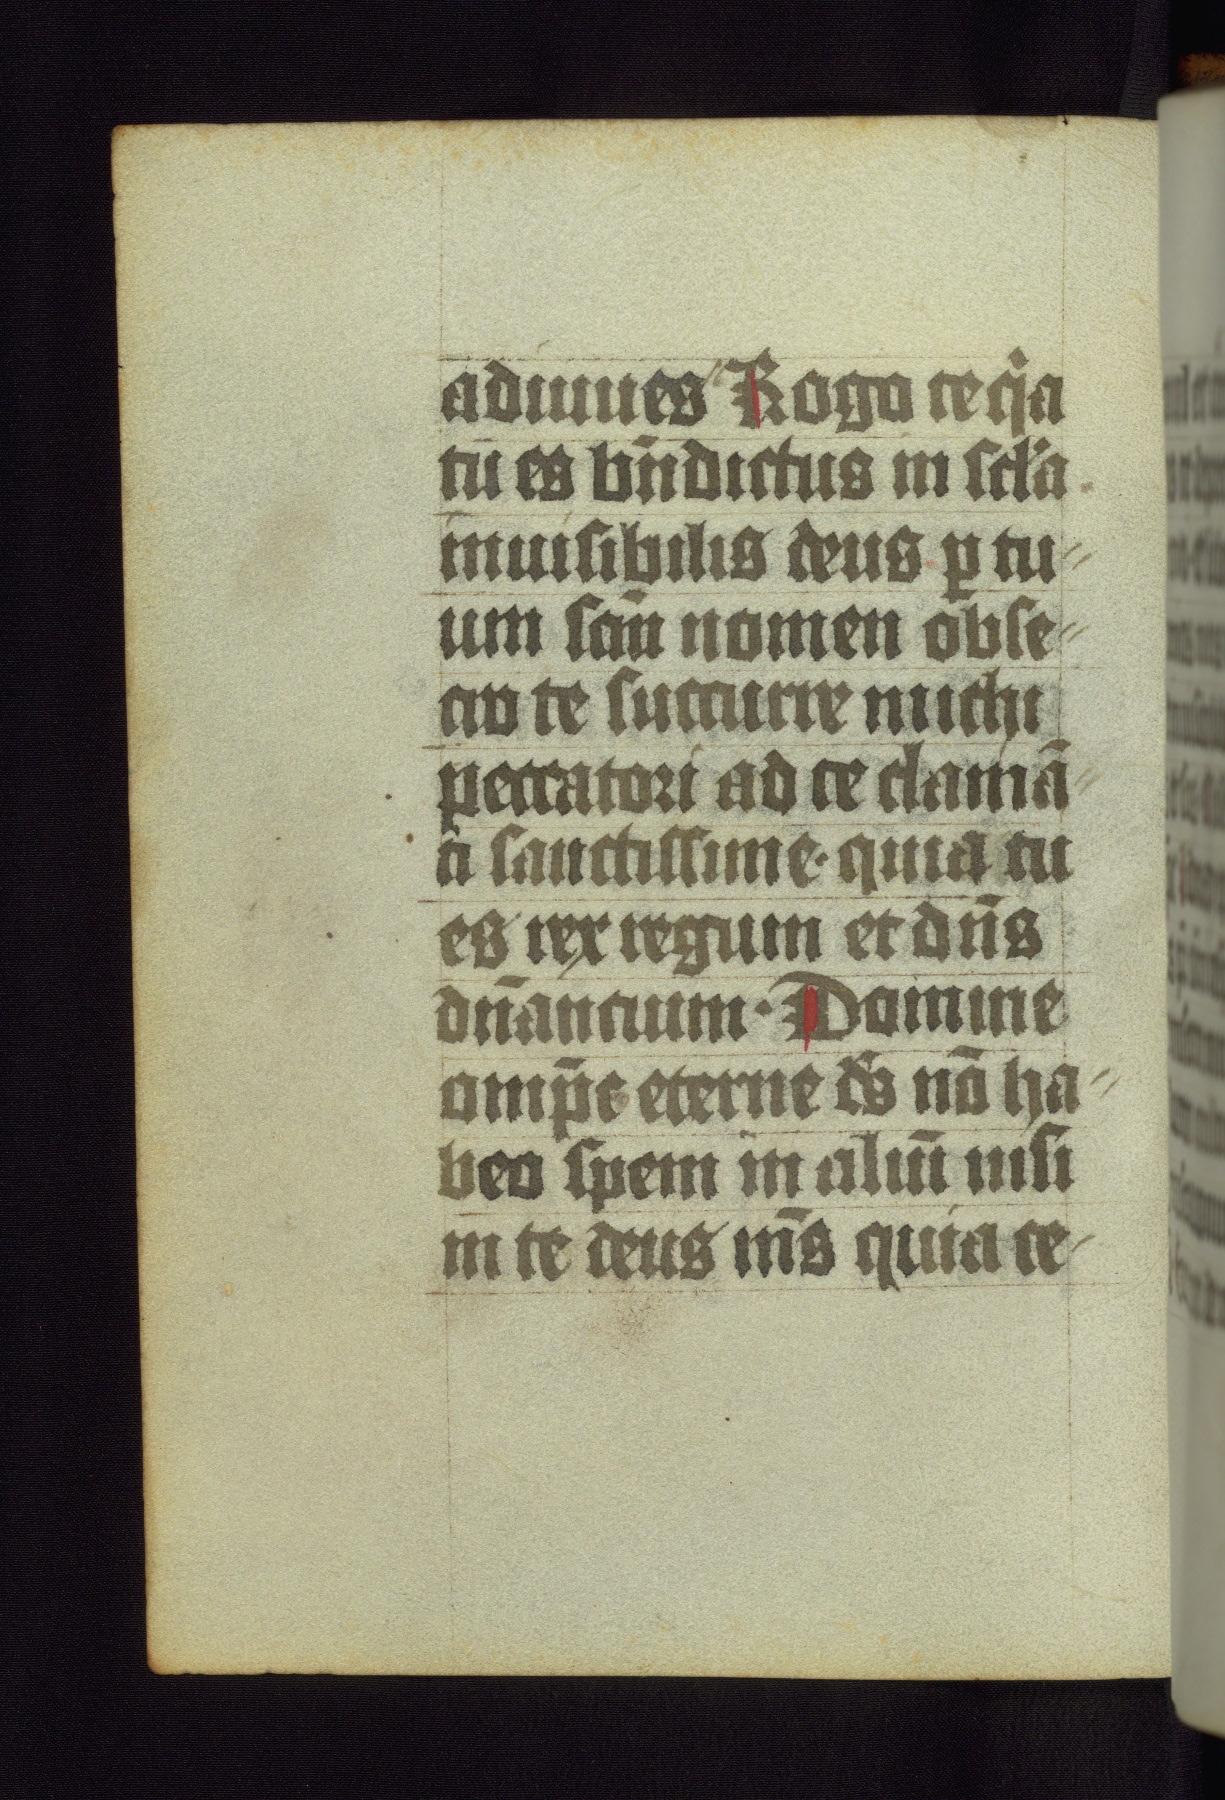 adiuues Rogo te q̇a
tu es bn̄dictus in scl̄a
inuisibilis deus ꝑ tu〃
um scm̄ nomen obse〃
cro te succurre michi
peccatori ad te clamā〃
ti sanctissime· quia tu
es rex regum et dn̄s
dn̄antium· Domine
omp̄e eterne ds̄ nō ha〃
beo spem in aliū nisi
in te deus ms̄ quia te